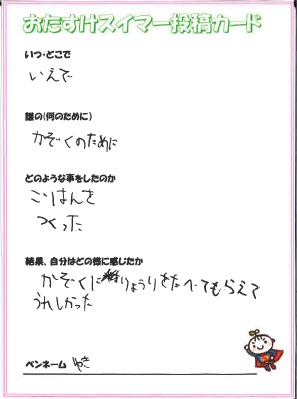 おたすけスイマー投稿カード
いつ・どこで
いえで
誰の(何のために)
かぞくのために
どのような事をしたのか
ごはんを
つくった
結果、自分はどの様に感じたか
かぞくにりょうりをたべてもらえて
うれしかった
ペンネーム ゆき